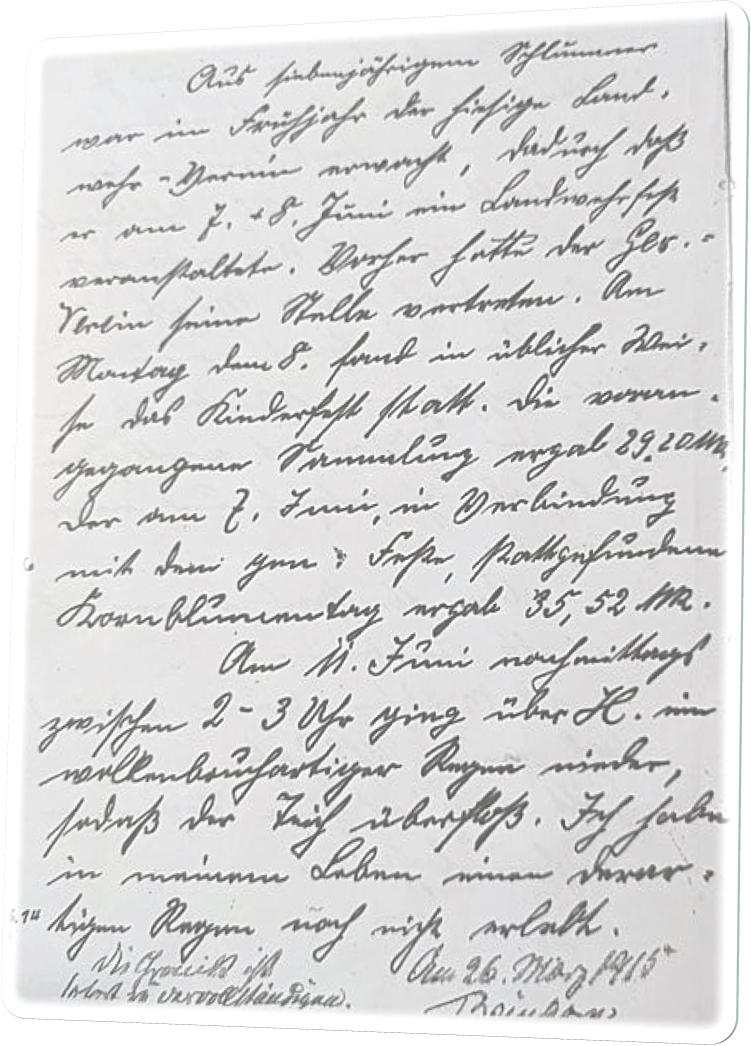 Aus siebenjährigem Schlummer
war im Frühjahr der hiesige Land-
wehr-Verein erwacht, dadurch daß
er am 7. + 8. Juni ein Landwehrfest
veranstaltete. Vorher hatte der Ges.-
Verein seine Stelle vertreten. Am
Montag dem 8. fand in üblicher Wei-
se das Kinderfest statt. Die voran-
gegangene Sammlung ergab 29,20 Mk,
der am 7. Juni, in Verbindung
mit dem gen. Feste, stattgefundene
Kornblumentag ergab 35,52 Mk.
Am 11. Juni nachmittags
zwischen 2-3 Uhr ging über H. ein
wolkenbruchartiger Regen nieder,
sodaß der Teich überfloß. Ich habe
in meinem Leben einen derar-
tigen Regen noch nicht erlebt.
14
Die Chronik ist
zu vervollständigen.
Am 26. März 1915